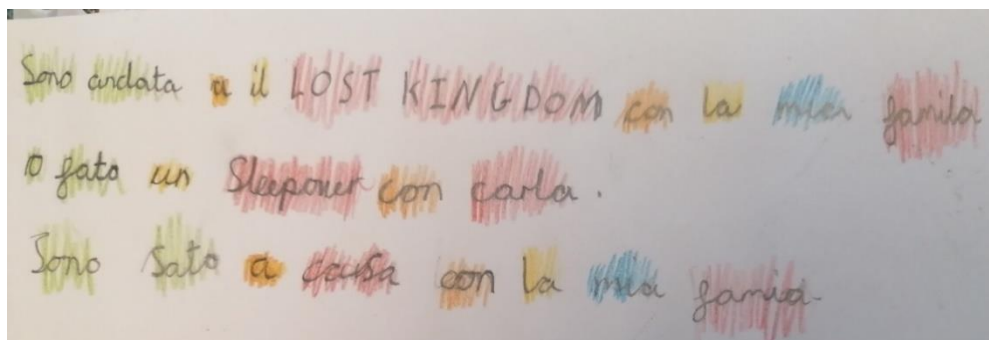 Sono andata a il LOST KINGDOM con la mia famila
o fato un Sleepover con carla.
Sono Sato a causa con la mia famia.